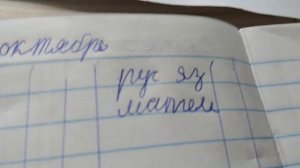 октябрь
рус яз
матем